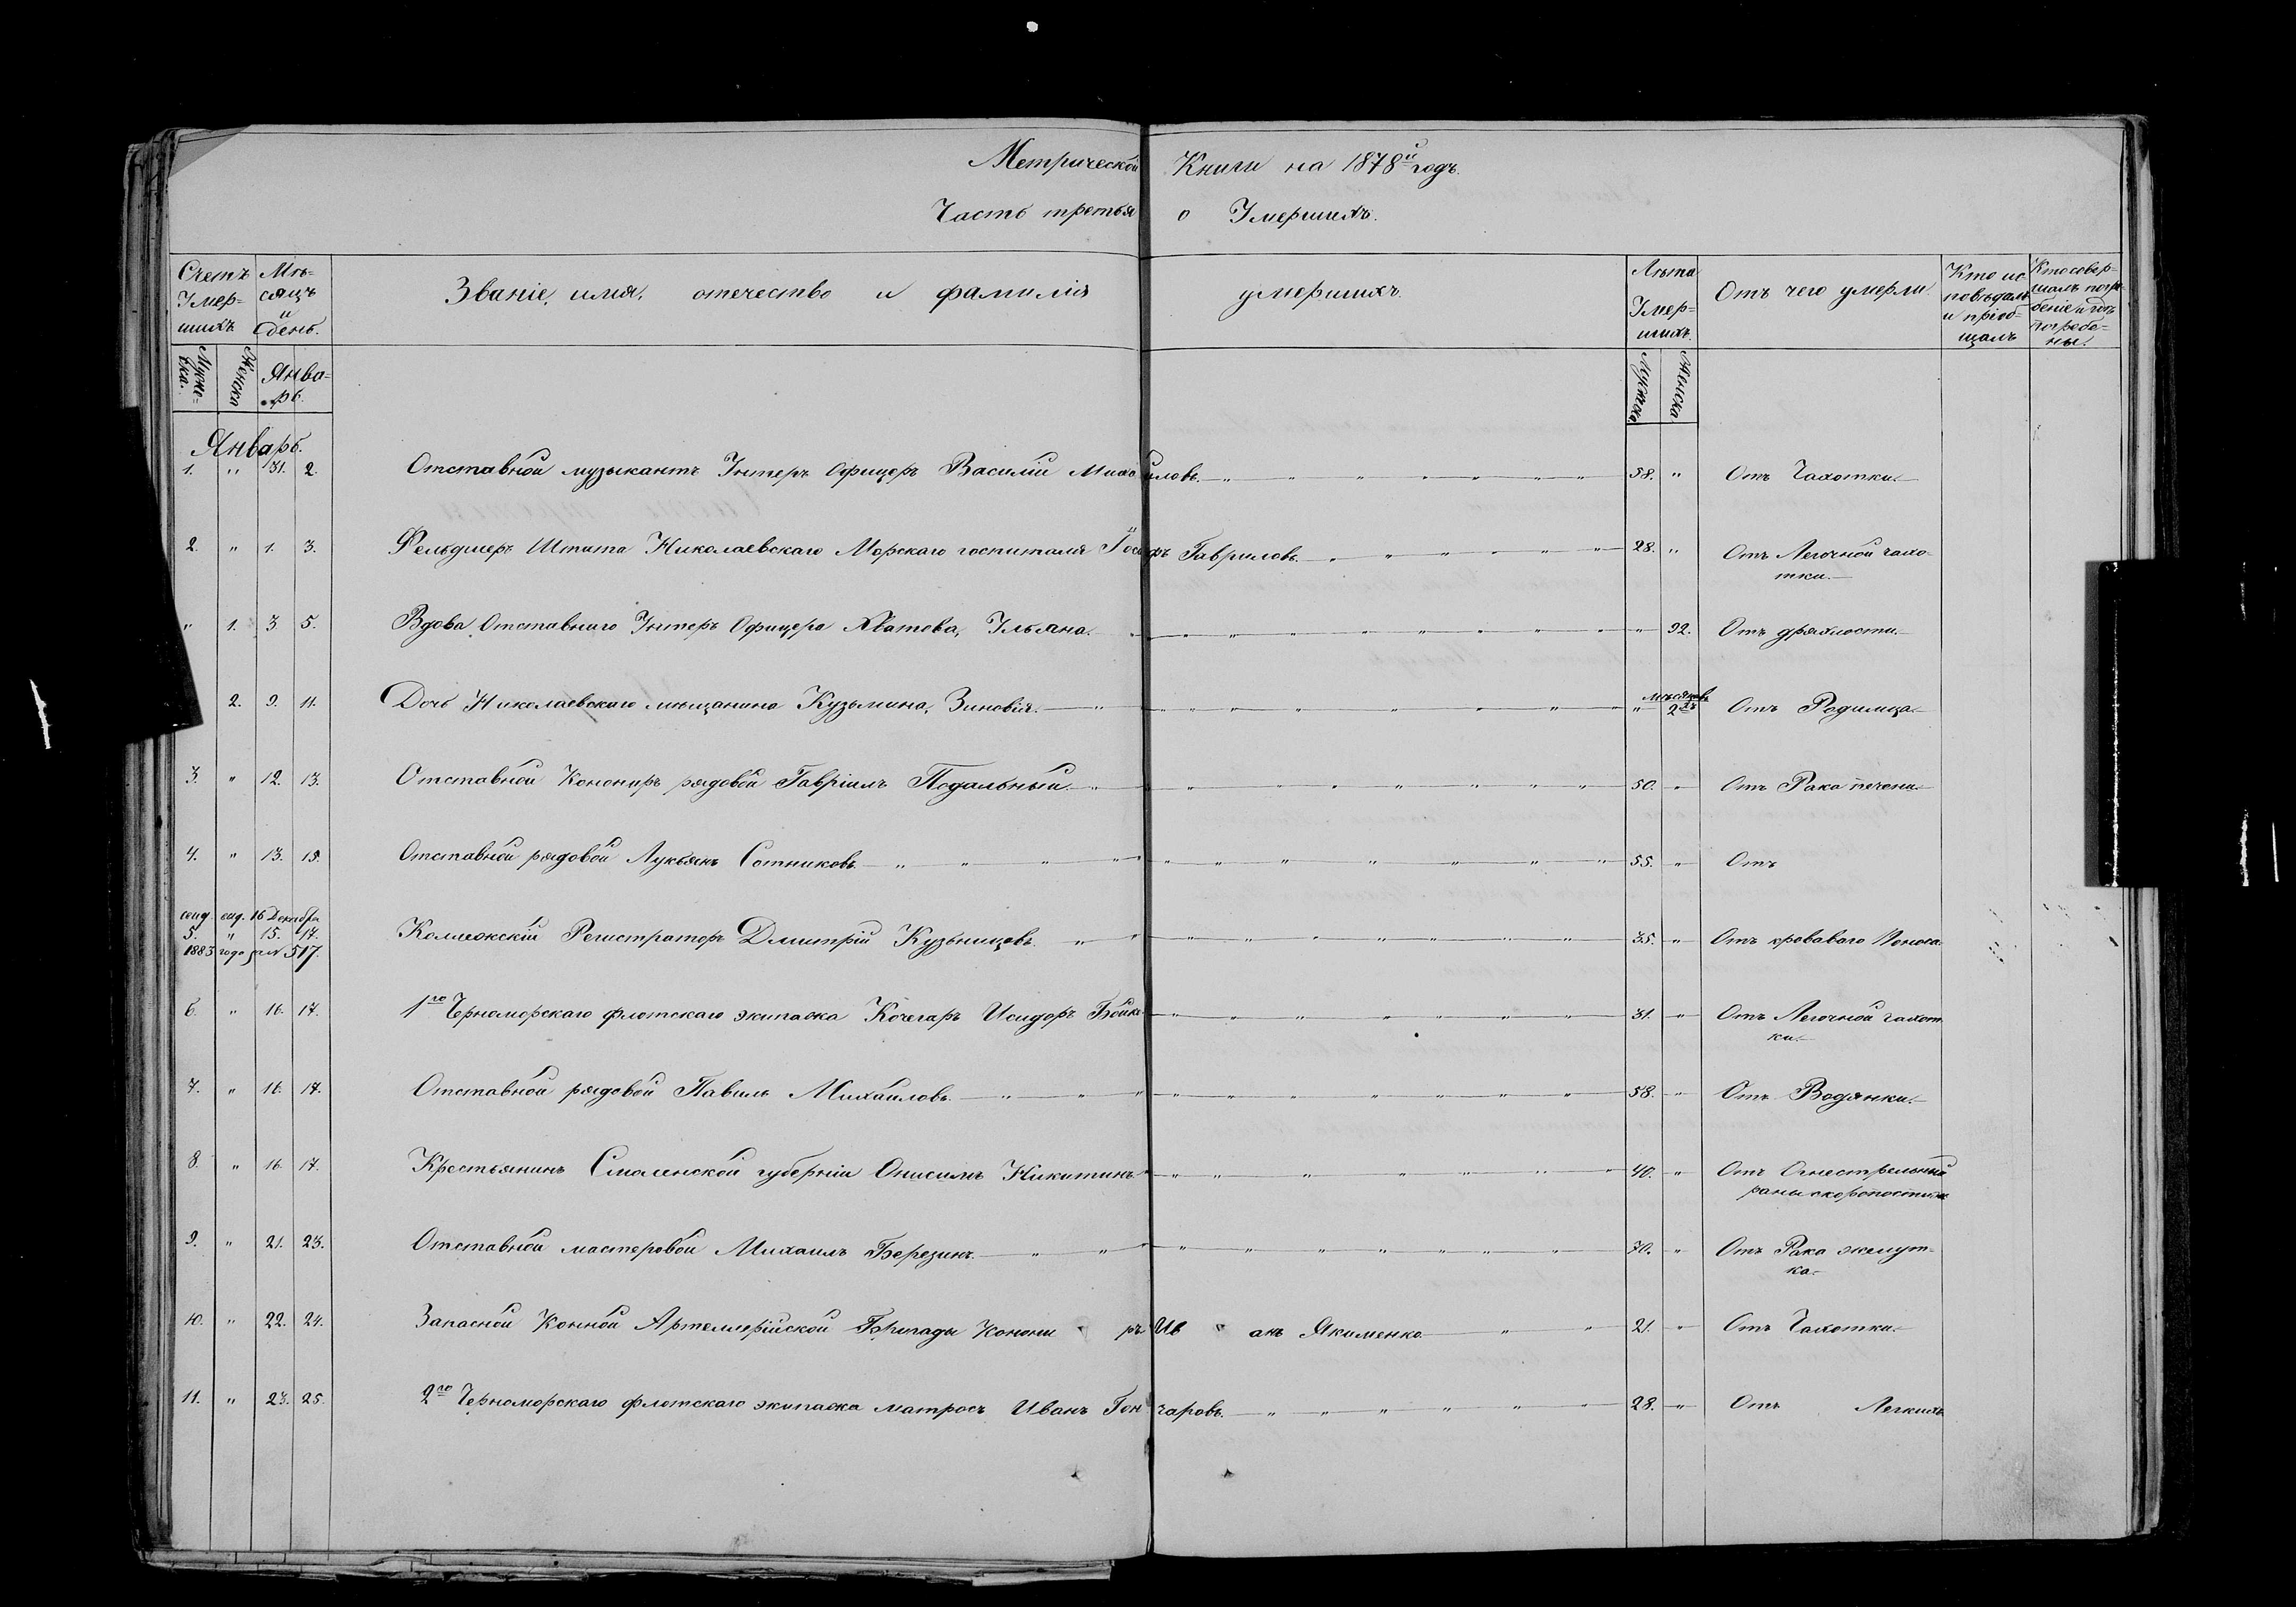 Метрической Книги на 1878й годъ.
Часть третья о Умершихъ.
Счетъ Умер=шихъ
Мѣ=сяцъ и день.
Званіе, имя, отечество и фамилія умершихъ.
Лѣта Умер=шихъ.
Отъ чего умерли.
Кто ис=повѣдалъ и пріоб=щалъ
Кто совер=шалъ погре=беніе и гдѣ погребе=ны.
Муже=ска. Женска Янва=рь. Мужеска Женска
Январь.
1. " 31. 2. Отставной музыкантъ Унтеръ Офицеръ Василій Михайловъ. 58. " Отъ Чахотки.
2. " 1. 3. Фельдшеръ Штата Николаевскаго Морскаго госпиталя Іосифъ Гавриловъ. 28. " Отъ Легочной чахо=
тки.
" 1. 3 5. Вдова Отставнаго Унтеръ Офицера Хватова, Ульяна. " 92. Отъ дряхлости.
мѣсяцовъ
2. 9. 11. Дочь Николаевскаго мѣщанина Кузьмина, Зиновія. " 2хъ Отъ Родимца.
3. " 12. 13. Отставной Конониръ рядовой Гавріилъ Подальный. 50. " Отъ Рака печени.
4. " 13. 15. Отставной рядовой Лукьянъ Сотниковъ. 55. " Отъ
16 Декабря
5. " 15. 17. Коллежскій Регистраторъ Дмитрій Кузьнецовъ. 35. " Отъ кроваваго Поноса.
1883 года за № 517.
6. " 16. 17. 1го Черноморскаго флотскаго экипажа Кочегаръ Исидоръ Бойко 31. " Отъ Легочной чахот
ки.
7. " 16. 17. Отставной рядовой Павелъ Михайловъ. 58. " Отъ Водянки.
8. " 16. 17. Крестьянинъ Смоленской губерніи Онисимъ Никитинъ 40. " Отъ Огнестрельной
раны скоропостижно
9. " 21. 23. Отставной мастеровой Михаилъ Березинъ. 70. " Отъ Рака желуд=
ка.
10. " 22. 24. Запасной Конной Артеллерійской Бригады Конониръ Иванъ Якименко. 21. " Отъ Чахотки.
11. " 23. 25. 2го Черноморскаго флотскаго экипажа матросъ Иванъ Гончаровъ. 28. " Отъ Легкихъ